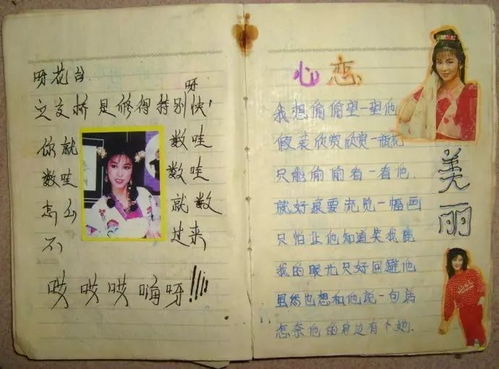 呀花台
呀
立交桥是修得特别快!
你就 数哇
数哇 数哇
怎么 就数
不 过来
哎哎哎嗨呀!!!!
心恋
我想偷偷望一望他
假装欣赏欣赏一瓶花
只能偷偷看一看他
就好象要流览一幅画
只怕让他知道笑我傻
我的眼光只好回避他
虽然也想和他说一句话
怎奈他的身边有个她.
美丽